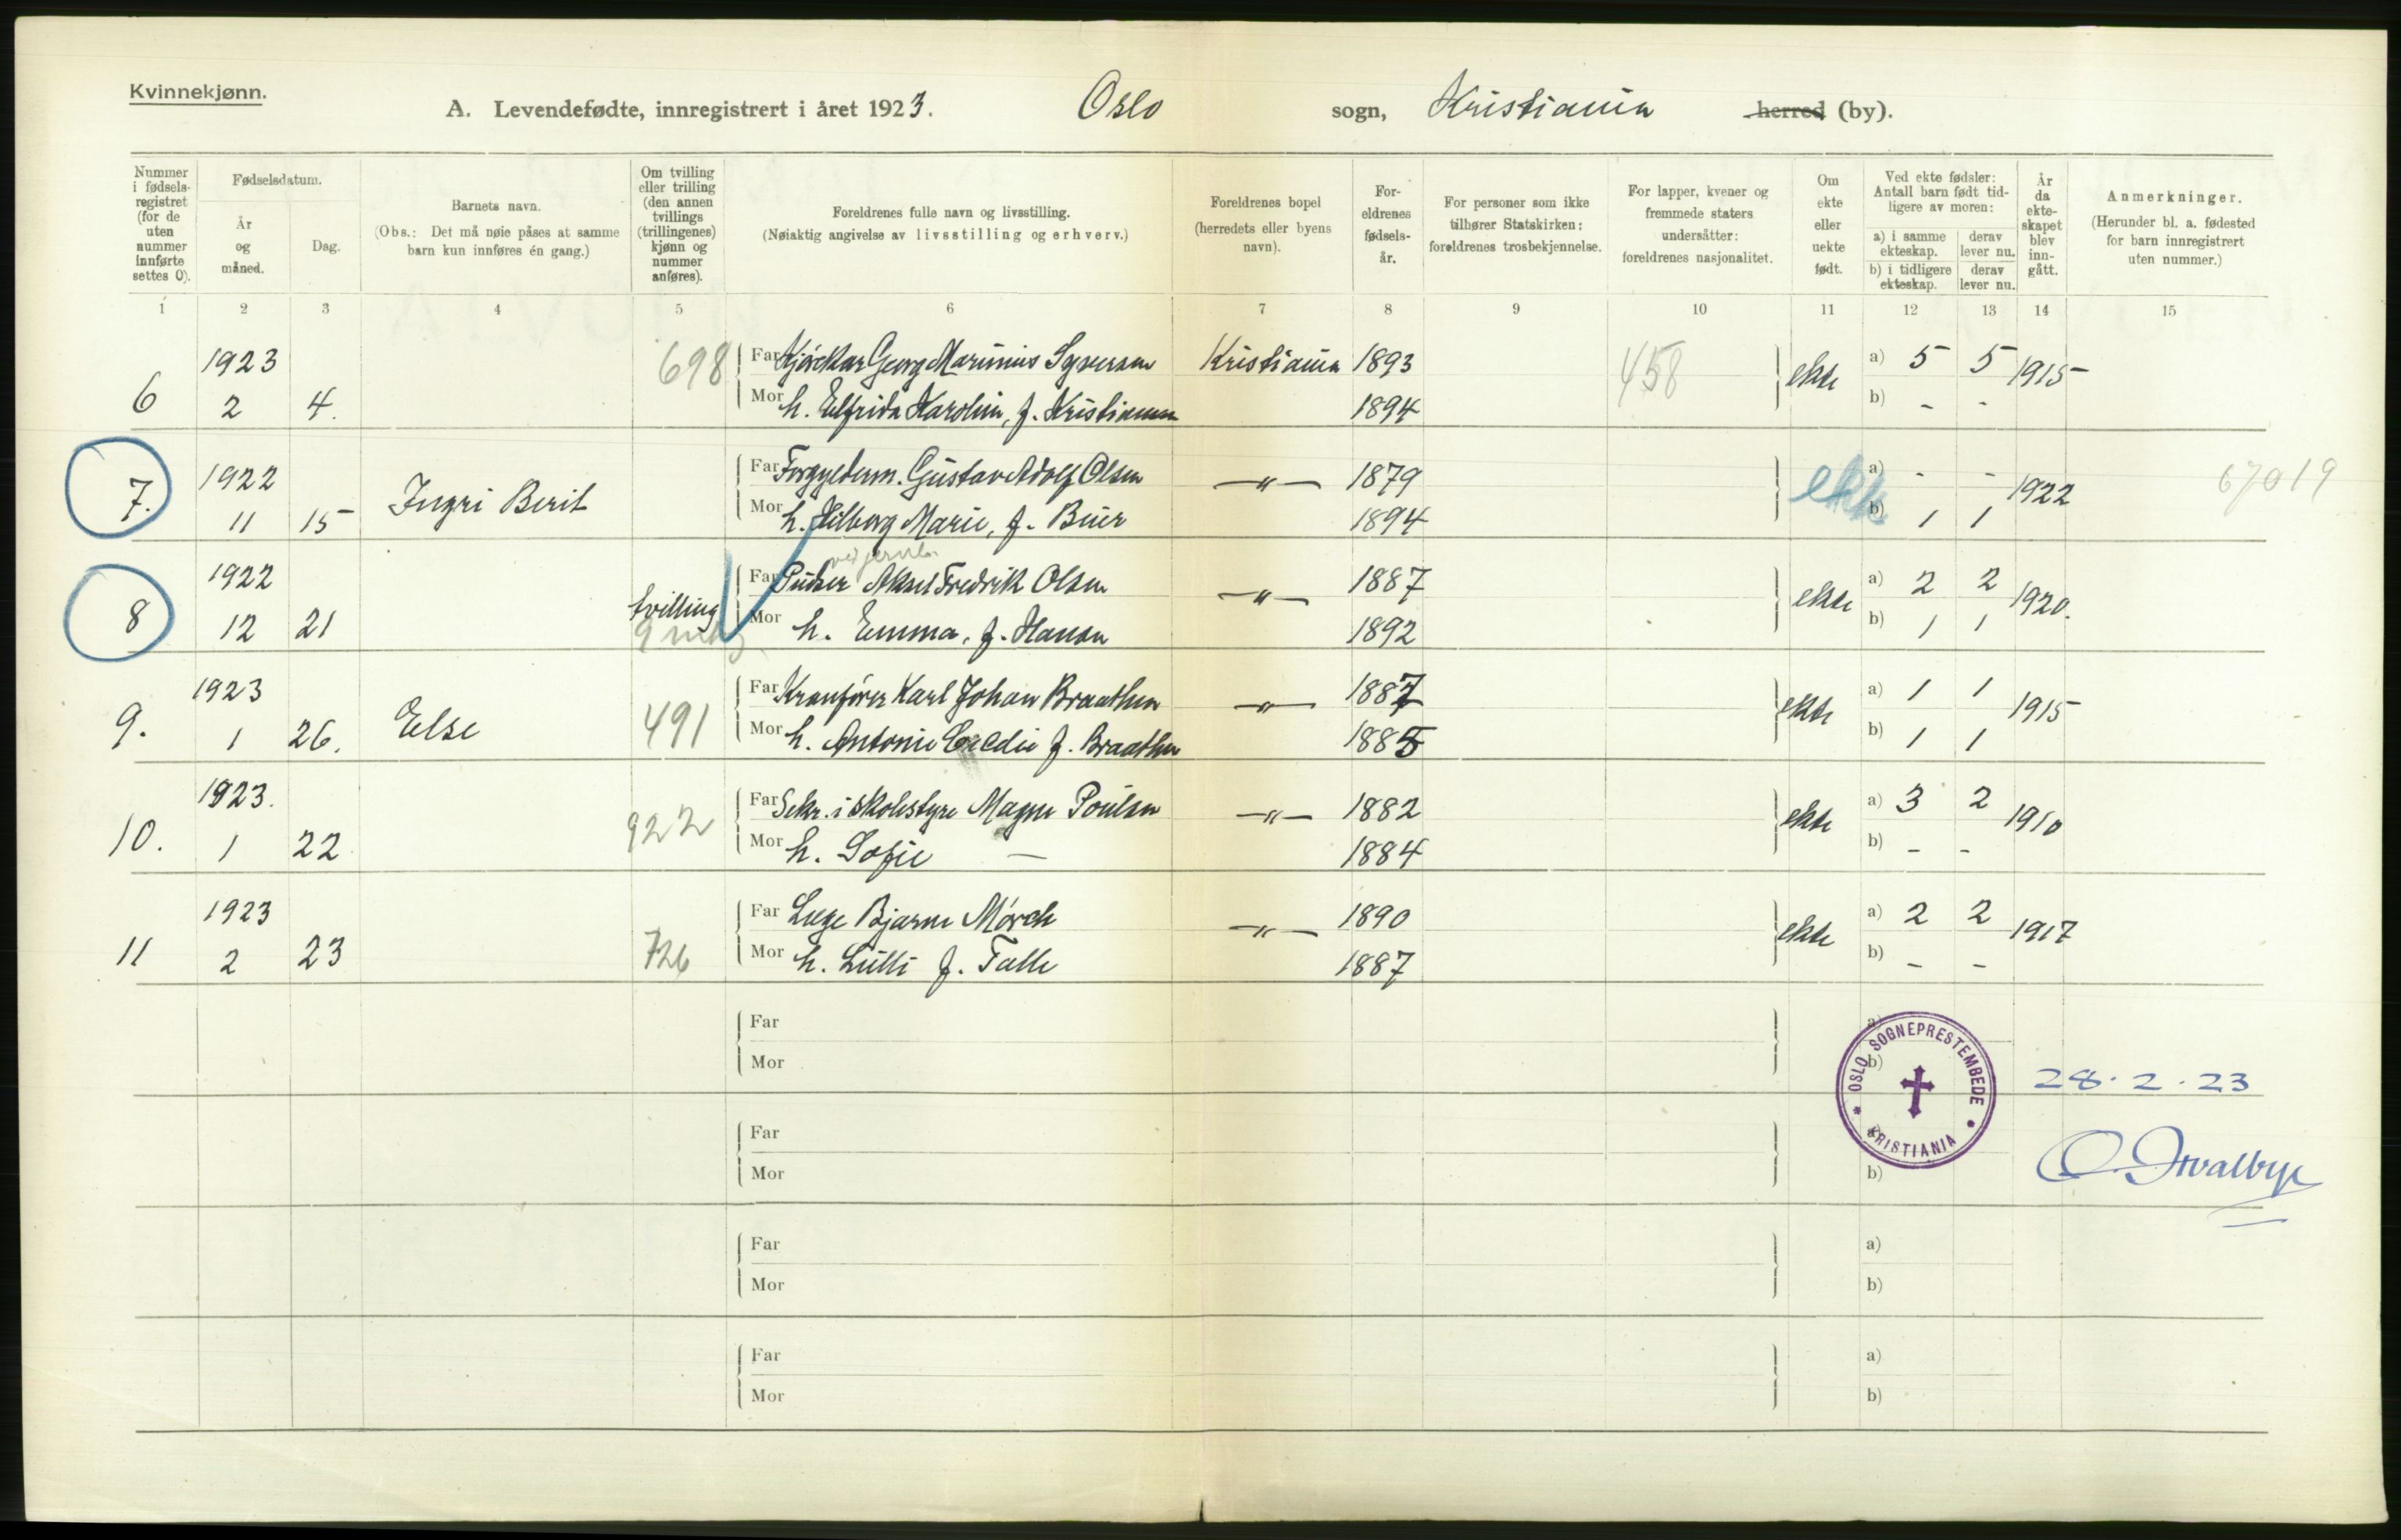 Kvinnekjønn.
A. Levendefødte, innregistrert i året 1923. Oslo sogn, Kristiania herred (by).
Nummer i fødsels-registret (for de uten nummer innførte settes 0).
Fødselsdatum.
År og måned.
Dag.
Barnets navn.
(Obs.: Det må nøie påses at samme barn kun innføres én gang.)
Om tvilling eller trilling (den annen tvillings (trillingenes) kjønn og nummer anføres).
Foreldrenes fulle navn og livsstilling.
(Nøiaktig angivelse av livsstilling og erhverv.)
Foreldrenes bopel (herredets eller byens navn).
For-eldrenes fødsels-år.
For personer som ikke tilhører Statskirken: foreldrenes trosbekjennelse.
For lapper, kvener og fremmede staters undersåtter: foreldrenes nasjonalitet.
Om ekte eller uekte født.
Ved ekte fødsler: Antall barn født tid-ligere av moren:
a) i samme ekteskap. derav lever nu.
b) i tidligere ekteskap. derav lever nu.
År da ekte-skapet blev inn-gått.
Anmerkninger.
(Herunder bl. a. fødested for barn innregistrert uten nummer.)
1 2 3 4 5 6 7 8 9 10 11 12 13 14 15
1923 698 Far Georg Marinius Syversen Kristiania 1893 458 ekte a) 5 5 1915
6 2 4. Mor h. Elfrida Karolin, f. Kristiansen 1894 b) - -
1922 Far Forgylderm. Gustav Adolf Olsen —"— 1879 ekte a) - - 1922 67019
7. 11 15 Ingri Berit Mor h. Hilborg Marie, f. Buer 1894 b) 1 1
1922 Far Pudser Aksel Fredrik Olsen —"— 1887 ekte a) 2 2 1920.
8 12 21 tvilling Mor h. Emma, f. Hansen 1892 b) 1 1
1923 Far Kranfører Karl Johan Braathen —"— 1887 ekte a) 1 1 1915
9. 1 26. Else 491 Mor h. Antonie f. Braathen 1885 b) 1 1
1923. Far Sekr. i skolestyre Magne Poulsen —"— 1882 ekte a) 3 2 1910
10. 1 22 922 Mor h. Sofie — 1884 b) - -
1923 Far Læge Bjarne Mørch —"— 1890 ekte a) 2 2 1917
11 2 23 726 Mor h. Lulli f. Falle 1887 b) - -
Far a)
Mor b)
OSLO SOGNEPRESTEMBEDE * KRISTIANIA *
28.2.23
Far
Mor b)
Far a)
Mor b)
Far a)
Mor b)